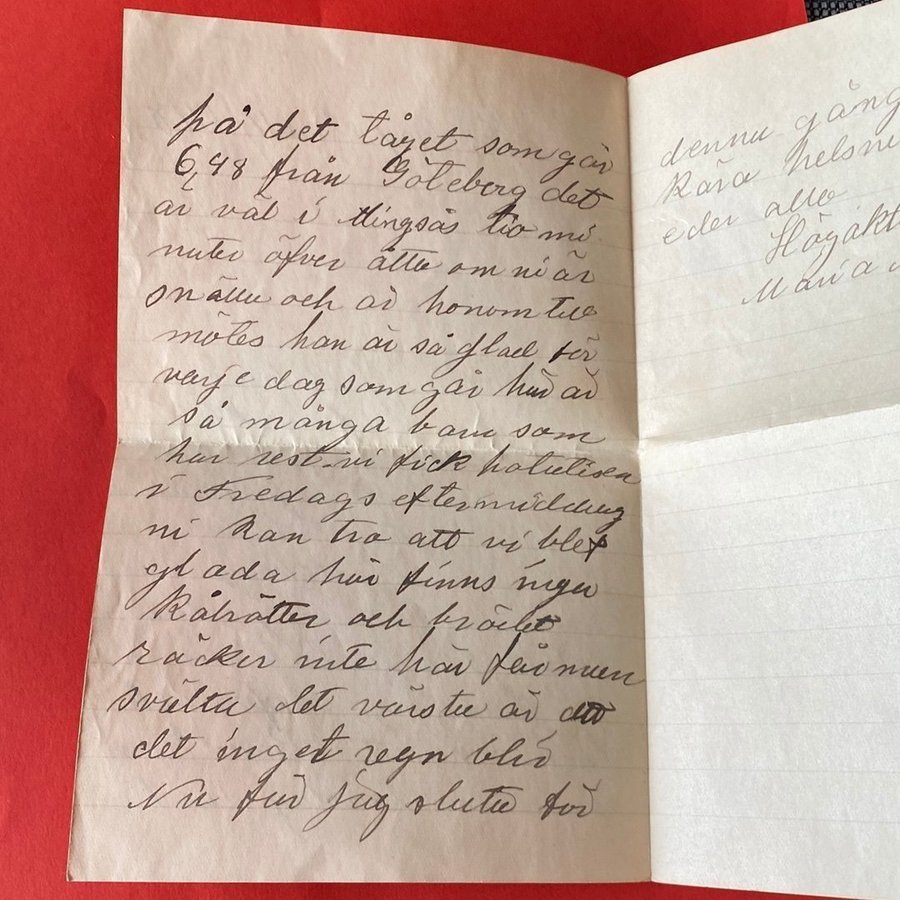 på det tåget som går
6,48 från Göteborg det
är väl i Alingsås tio mi
nuter öfver åtta om ni är
snälla och är honom till
mötes han är så glad för
varje dag som går här är
så många barn som
har rest vi fick
i Fredags eftermiddag
ni kan tro att vi blef
glada här finns inga
kålrötter och brödet
räcker inte här får man
svälta det värsta är att
det inget regn blir
Nu får jag sluta för
denna gång
Kära helsni
eder alla
Högakt
Maria